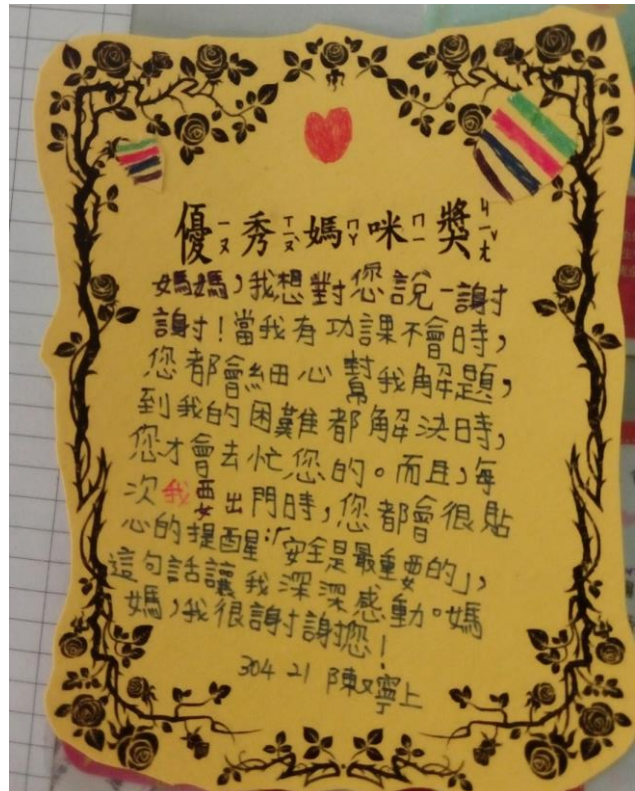 優ㄧㄡ秀ㄒㄧㄡˋ媽ㄇㄚ咪ㄇㄧ獎ㄐㄧㄤˇ
媽媽，我想對您說一謝
謝！當我有功課不會時，
您都會細心幫我解題，
到我的困難都解決時，
您才會去忙您的。而且，每
次我要出門時，您都會很貼
心的提醒：「安全是最重要的」，
這句話讓我深深感動。媽
媽，我很謝謝您！
304 21 陳又寧上